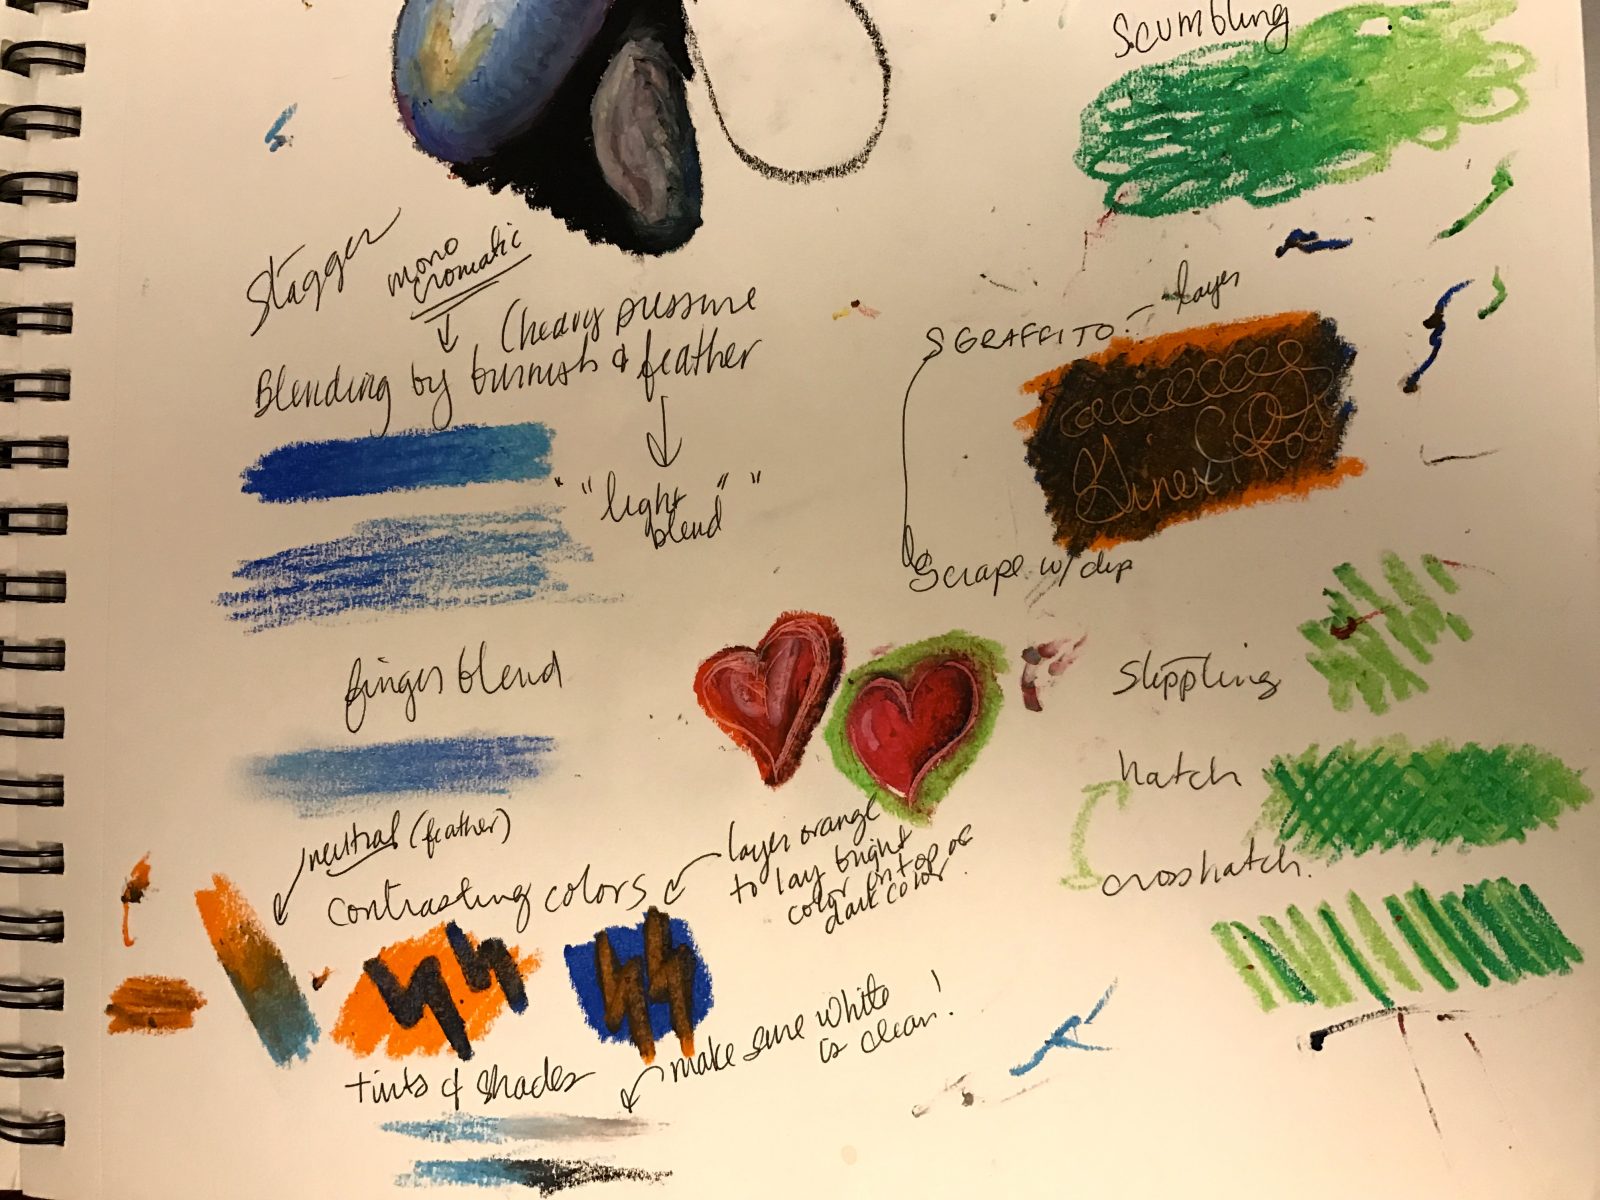 Scumbling
Stagger
mono
cromatic
(heavy pressure
Blending by burnish & feather
" "light " "
blend"
finger blend
neutral (feather)
contrasting colors
layer orange
to lay bright
color on top of
dark color.
tints & shades
make sure white
is clean!
SGRAFFITO - layer
Scrape w/
Stippling
hatch
crosshatch.